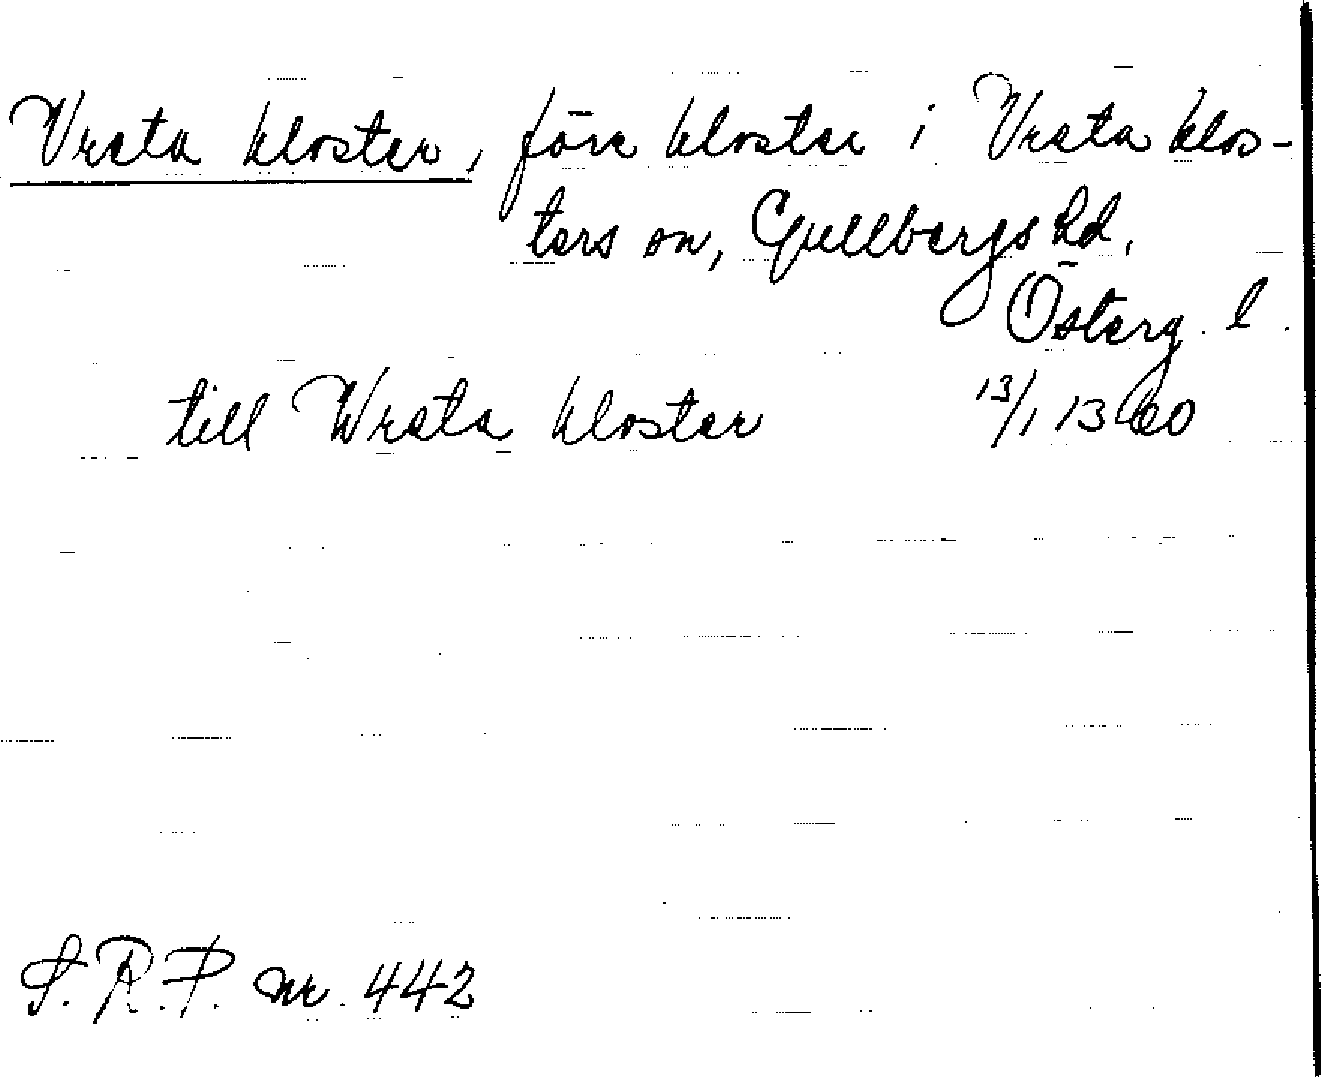 Vreta kloster, förr kloster i Vreta klos-
ters sn, Gullbergs hd,
Österg. l.
till Wreta kloster 13/1 1360
S.R.P. nr. 442